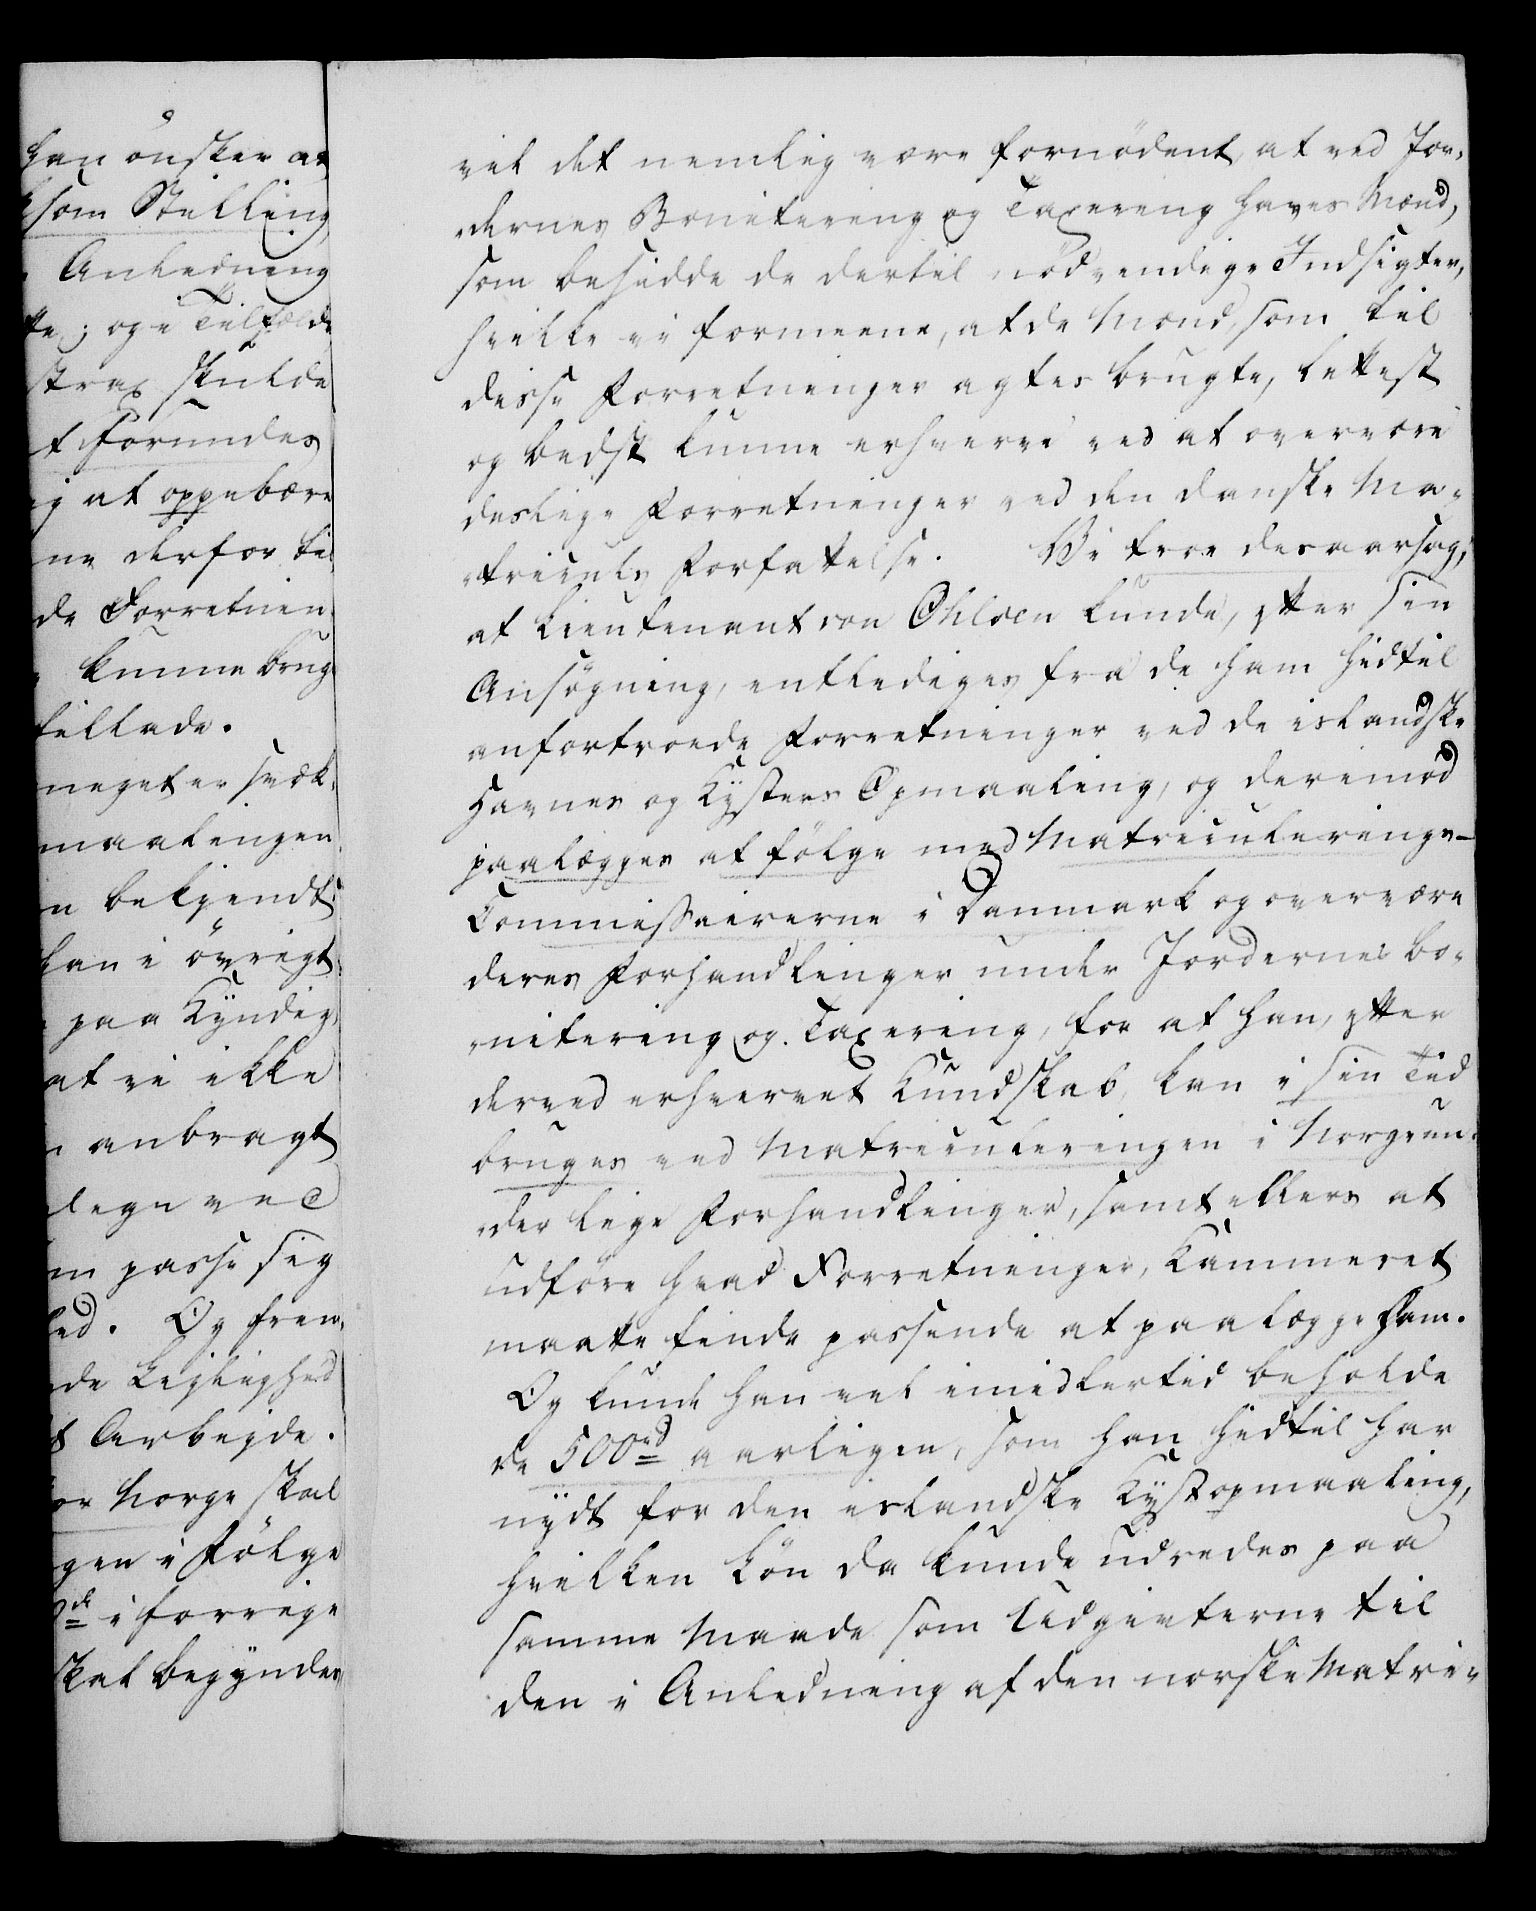 han önsker at
som Stilling
Anledning
te; og i Tilfælde
strax skulde
t forundes
ig at oppebære
ne derfor til
de Forretnin
kunne brug
tillade.
meget er svæk,
maalingen
n bekjendt
han i övrigt
paa Kyndig,
at vi ikke
anbragt
legn ved
m passe sig
ed. Og frem,
de Lejlighed
t Arbejde.
or Norge skal
gen i Fölge
de i forrige
skal begyndes,
vil det nemlig være fornödent, at ved Jor,
,dernes Bonitering og Taxering haves Mænd,
som besidde de dertil nödvendige Indsigter,
hvilke vi formeene, at de Mænd, som til
disse Forretninger agtes brugte, lettest
og bedst kunne erhverve ved at overvære
deslige Forretninger ved den danske Ma,
,triculs Forfattelse. Vi troe desaarsag,
at Lieutenant von Ohlsen kunde, efter sin
Ansögning, entlediges fra de ham hidtil
anfortroede Forretninger ved de islandske
Havnes og Kysters Opmaaling, og derimod
paalægges at fölge med Matriculerings-
Commissairerne i Danmark og overvære
deres Forhandlinger under Jordernes bo,
,nitering og Taxering, for at han, efter
derved erhvervet Kundskab, kan i sin Tid
bruges ved Matriculeringen i Norge un,
,der lige Forhandlinger, samt ellers at
udföre hvad Forretninger, Kammeret
maatte finde passende at paalægge ham.
Og kunde han vel imidlertid beholde
de 500 rd aarligen, som han hidtil har
nydt for den islandske Kystopmaaling,
hvilken Lön da kunde udredes paa
samme Maade som Udgivterne til
den i Anledning af den norske Matri,